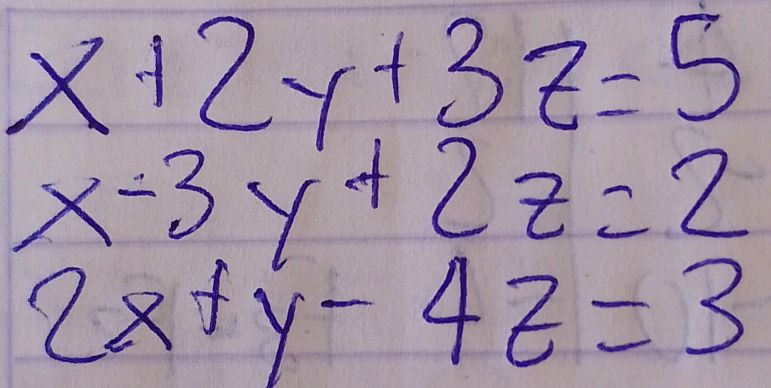 x+2y+3z=5
x-3y+2z=2
2x+y-4z=3